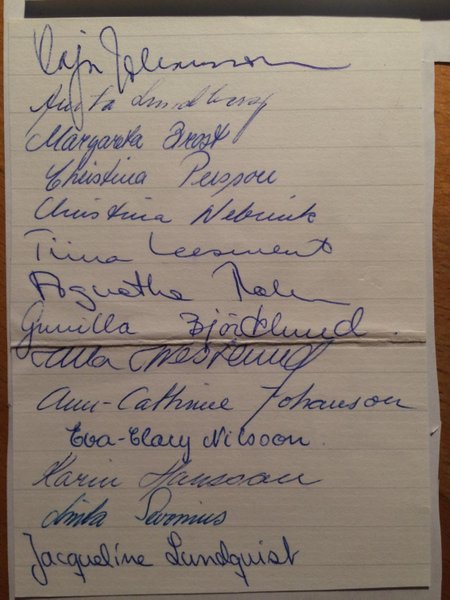 Kaja Johansson
Anita Lundberg
Margareta Brost
Christina Persson
Christina Nebrink
Tiina Leesment
Agnetha
Gunilla Björklund
Westlund
Ann-Cathrine Johansson
Eva-Clary Nilsson
Karin Hansson
Linda
Jacqueline Lundquist